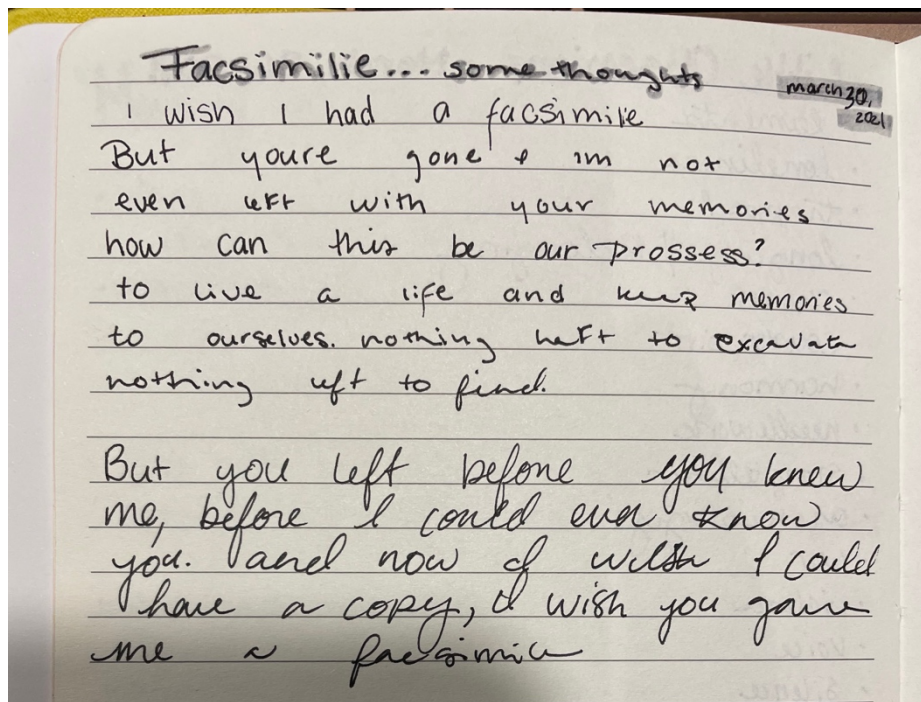 Facsimilie... some thoughts
march 30,
2021
I wish I had a facsimile
But youre gone & im not
even left with your memories
how can this be our prossess?
to live a life and keep memories
to ourselves. nothing left to excavate
nothing left to find.
But you left before you knew
me, before I could ever know
you. and now I wish I could
have a copy, I wish you gave
me a facsimile